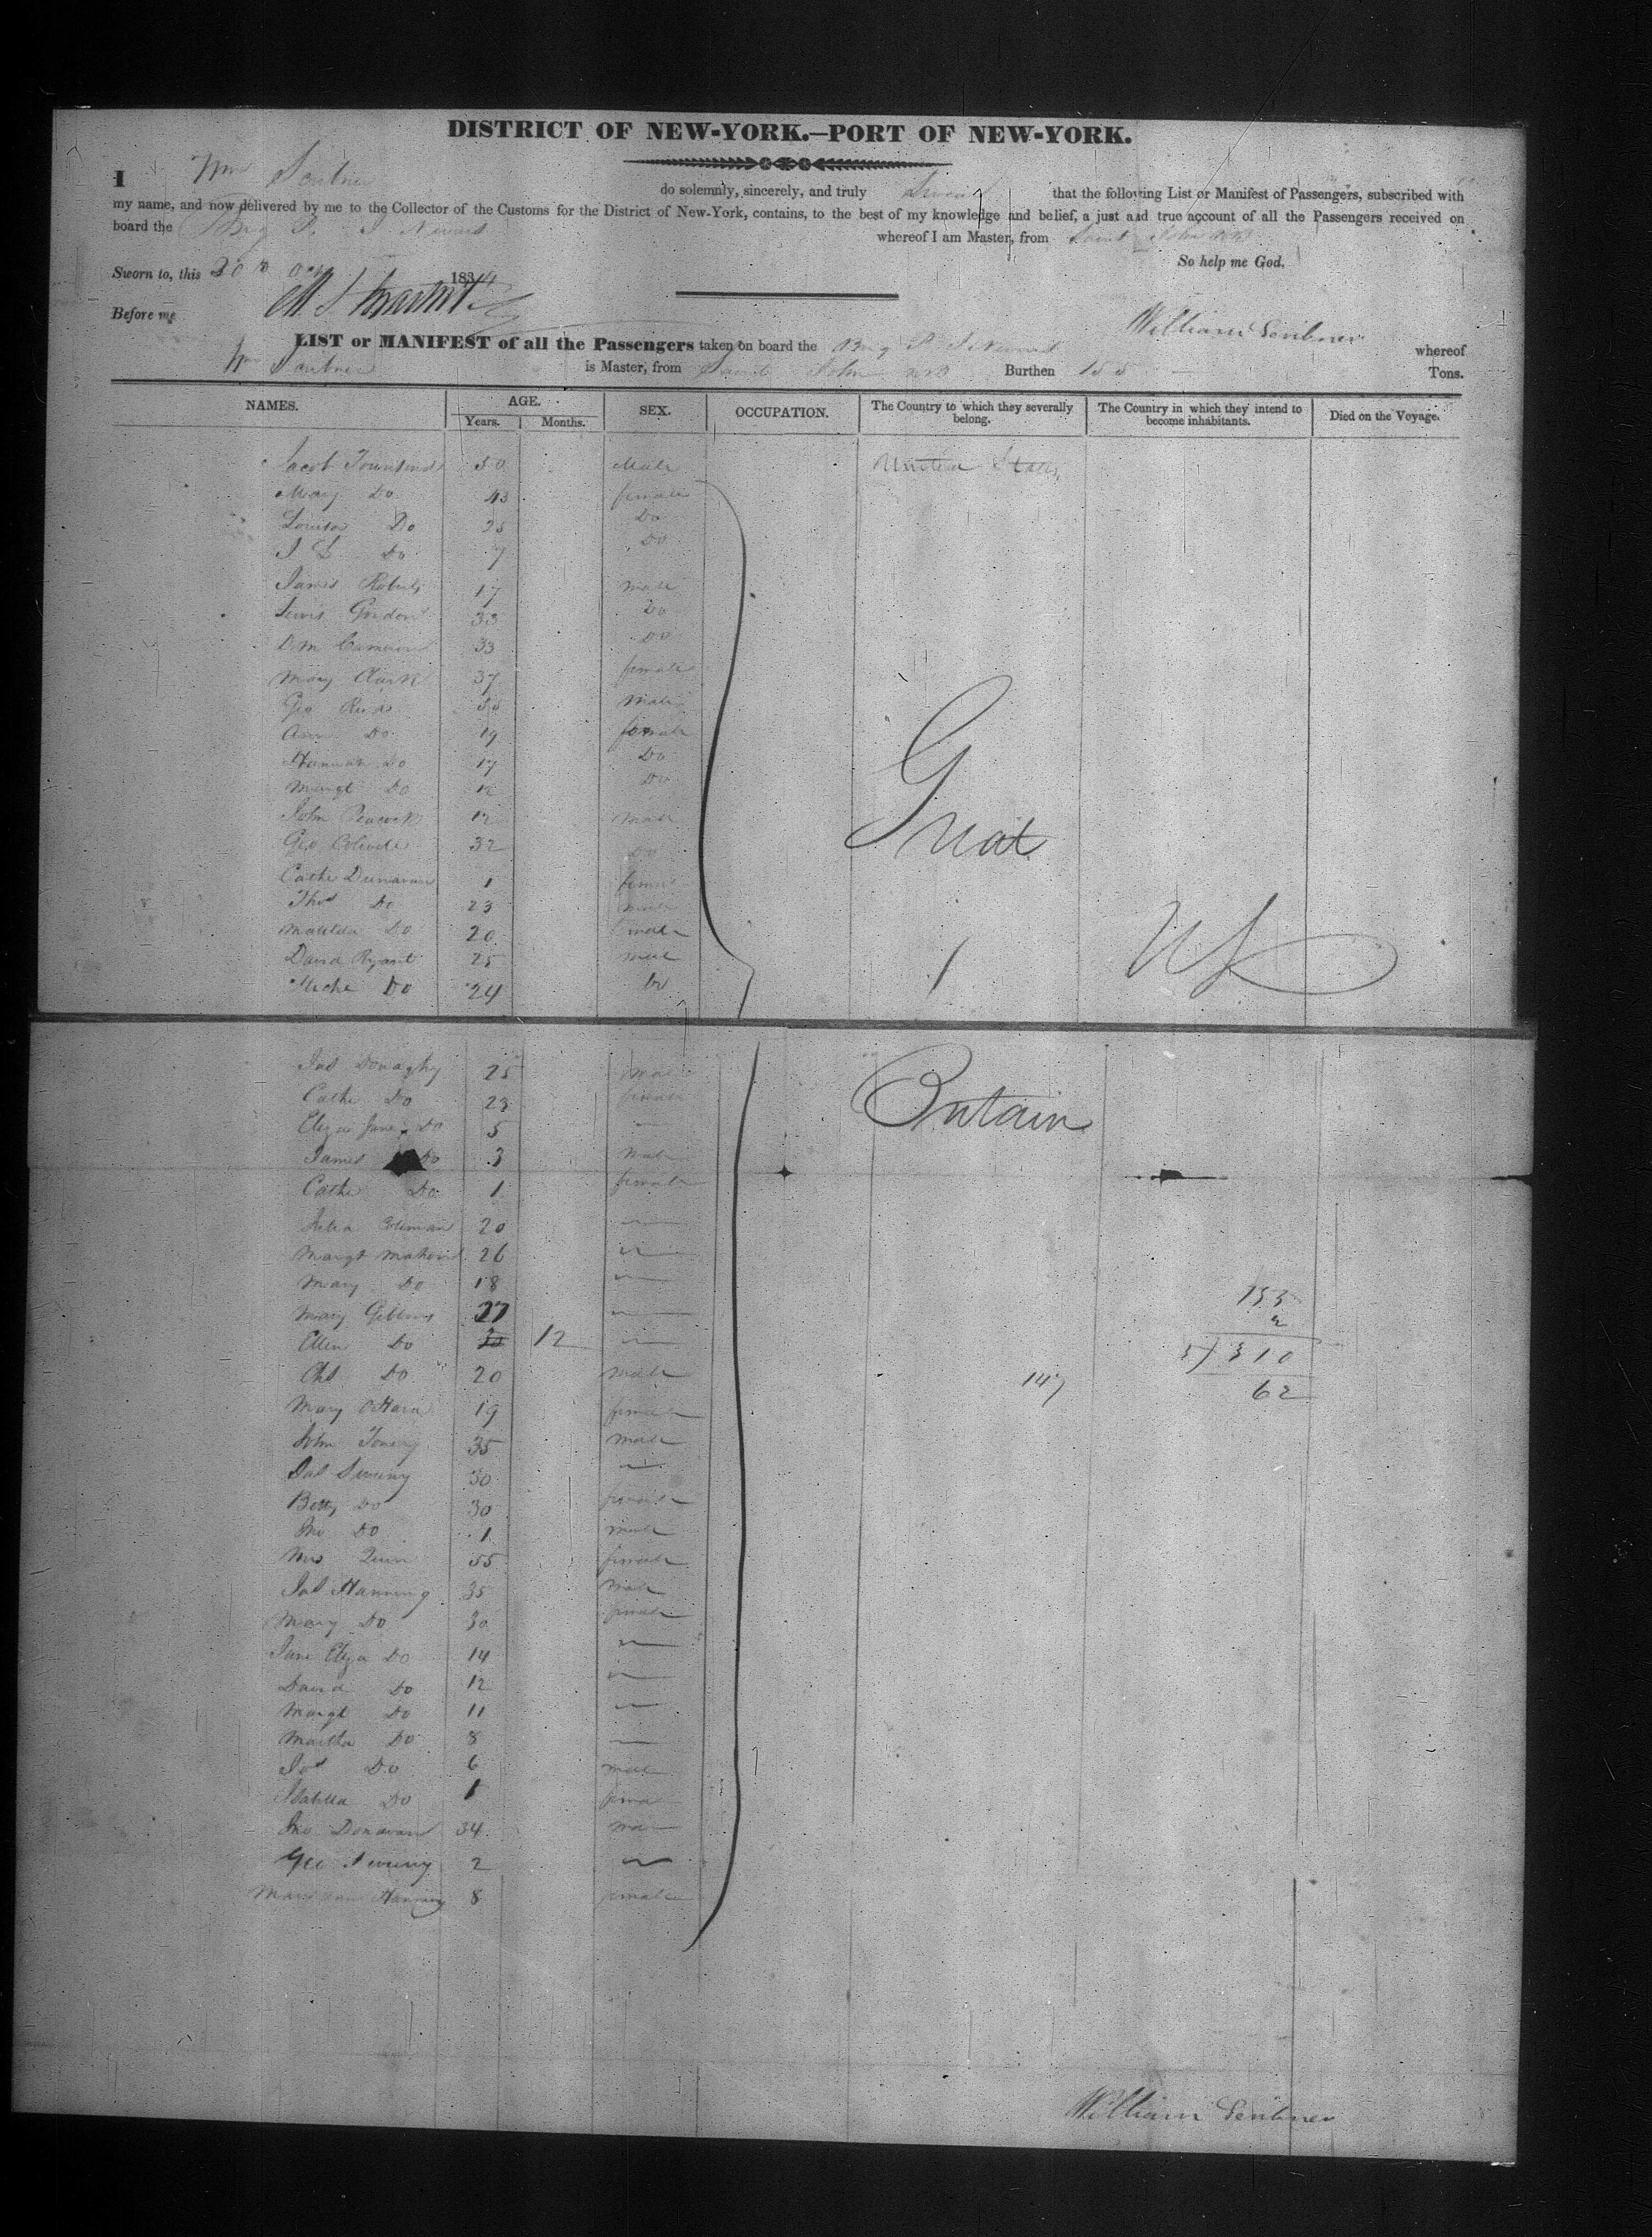 DISTRICT OF NEW-YORK.—PORT OF NEW-YORK.
I Wm Scribner do solemnly, sincerely, and truly Swear that the following List or Manifest of Passengers, subscribed with
my name, and now delivered by me to the Collector of the Customs for the District of New-York, contains, to the best of my knowledge and belief, a just and true account of all the Passengers received on
board the Brig whereof I am Master, from Saint John NB
So help me God.
Sworn to, this 20th 1834
Before me
William Scribner
LIST or MANIFEST of all the Passengers taken on board the Brig whereof
Wm Scribner is Master, from Saint John NB Burthen 155 Tons.
NAMES. AGE. SEX. OCCUPATION. The Country to which they severally belong. The Country in which they intend to become inhabitants. Died on the Voyage.
Years. Months.
Jacob Townsend 50 Male United States
Mary Do 43 female
Louisa Do 25 Do
Do 7 Do
James Roberts 17 male
Lewis Gordon 33 Do
Cameron 33 Do
Mary Clark 37 female
Geo male
Ann Do 19 female
Hannah Do 17 Do
Margt Do 12 Do
John Peacock 12 male
Geo 32 Do
Cathe Dunavan 1 female
Thos Do 23 male
Matilda Do 20 female
David Ryant 25 male
Do 24 Do
Great
US
Jas Donaghy 25 male
Cathe Do 23 female
Eliza Jane Do 5
James Do 3 male
Cathe Do 1 female
Britain
Julia Coleman 20
Margt 26
Mary Do 18
Mary Gibbons 27
Ellen Do 12
Chs Do 20 male
Mary OHara 19 female
John 35 male
Jas Sweeny 30
Betty Do 30 female
Jno Do 1 male
Mrs Quin 55 female
Jas Hanning 35 male
Mary Do 30 female
Jane Eliza Do 14
David Do 12
Margt Do 11
Martha Do 8
Jos Do 6 male
Isabella Do 1 female
Jno Donavan 34 male
Geo Sweeny 2
Mary ann Hanning 8 female
155
2
5) 310
62
147
William Scribner